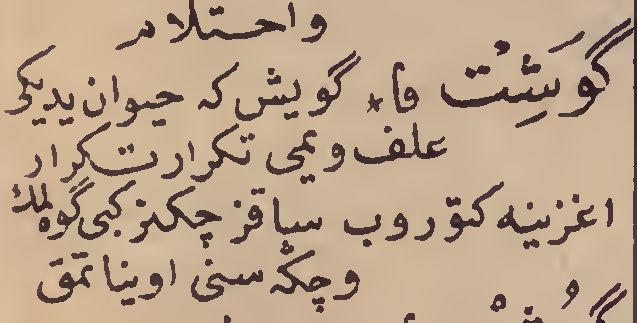 واحتلام
گَوَشِتُ فاء گویش که حیوان یدیکی
علف ویمی تکرار تکرار
اغزینه کتوروب ساقز چکنر کبی گوه لمك
وچکه سنی اویناتمق